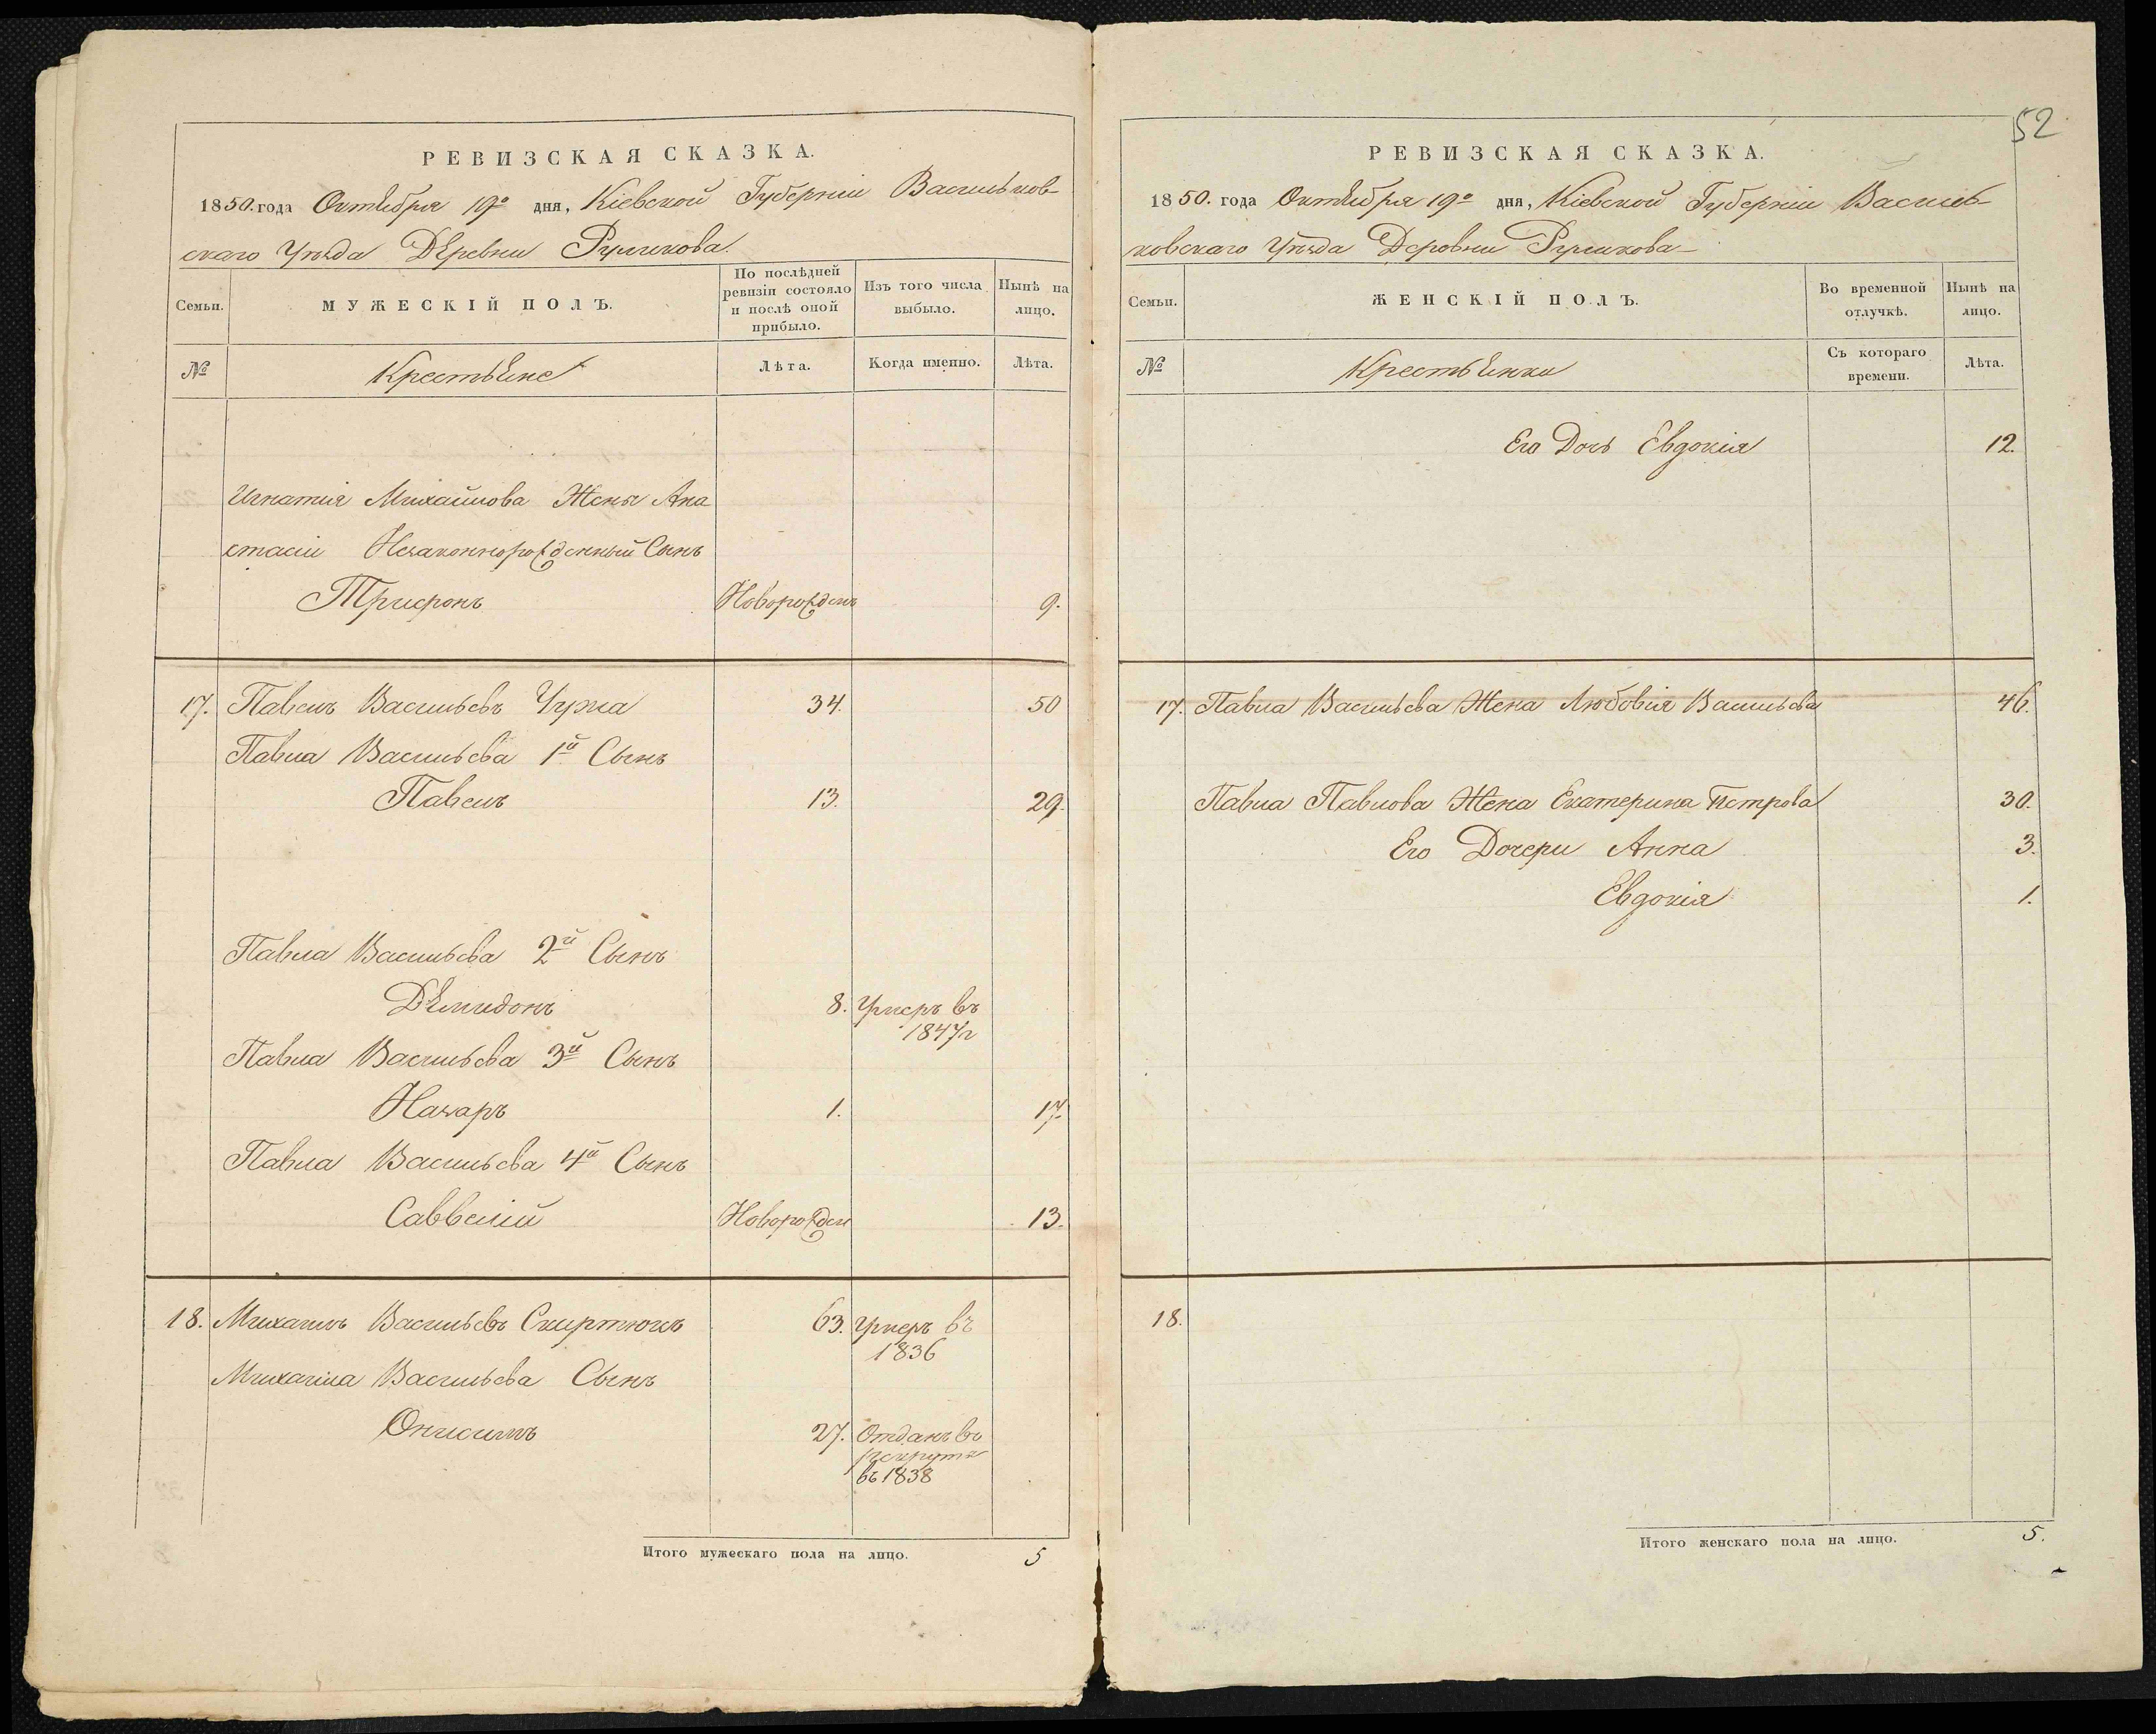 РЕВИЗСКАЯ СКАЗКА.
1850. года Октября 19го дня, Кіевской Губерніи Васильков-
скаго Уѣзда Деревни
Семьи.
МУЖЕСКІЙ ПОЛЪ.
По послѣдней ревизіи состояло и послѣ оной прибыло.
Изъ того числа выбыло.
Нынѣ на лицо.
№
Крестьяне
Лѣта.
Когда именно.
Лѣта.
Игнатія Михайлова Жены Ана
стасіи Незаконнорожденный Сынъ
Трифонъ Новорожденъ 9.
17. Павелъ Васильевъ 34. 50
Павла Васильева 1й Сынъ
Павелъ 13. 29.
Павла Васильева 2й Сынъ
Демидонъ 8. Умеръ въ
1847г
Павла Васильева 3й Сынъ
Назаръ 1. 17.
Павла Васильева 4й Сынъ
Савветій Новорожден 13.
18. Михаилъ Васильевъ Скиртюкъ 63. Умеръ въ
1836
Михаила Васильева Сынъ
Онисимъ 27. Отданъ въ
рекруты
въ 1838
Итого мужескаго пола на лицо. 5
52
РЕВИЗСКАЯ СКАЗКА.
1850. года Октября 19го дня, Кіевской Губерніи Василь-
ковскаго Уѣзда Деревни
Семьи.
ЖЕНСКІЙ ПОЛЪ.
Во временной отлучкѣ.
Нынѣ на лицо.
№
Крестьянки
Съ котораго времени.
Лѣта.
Его Дочь Евдокія 12.
17. Павла Васильева Жена Любовія Васильева 46.
Павла Павлова Жена Екатерина Петрова 30.
Его Дочери Анна 3.
Евдокія 1.
18.
Итого женскаго пола на лицо. 5.